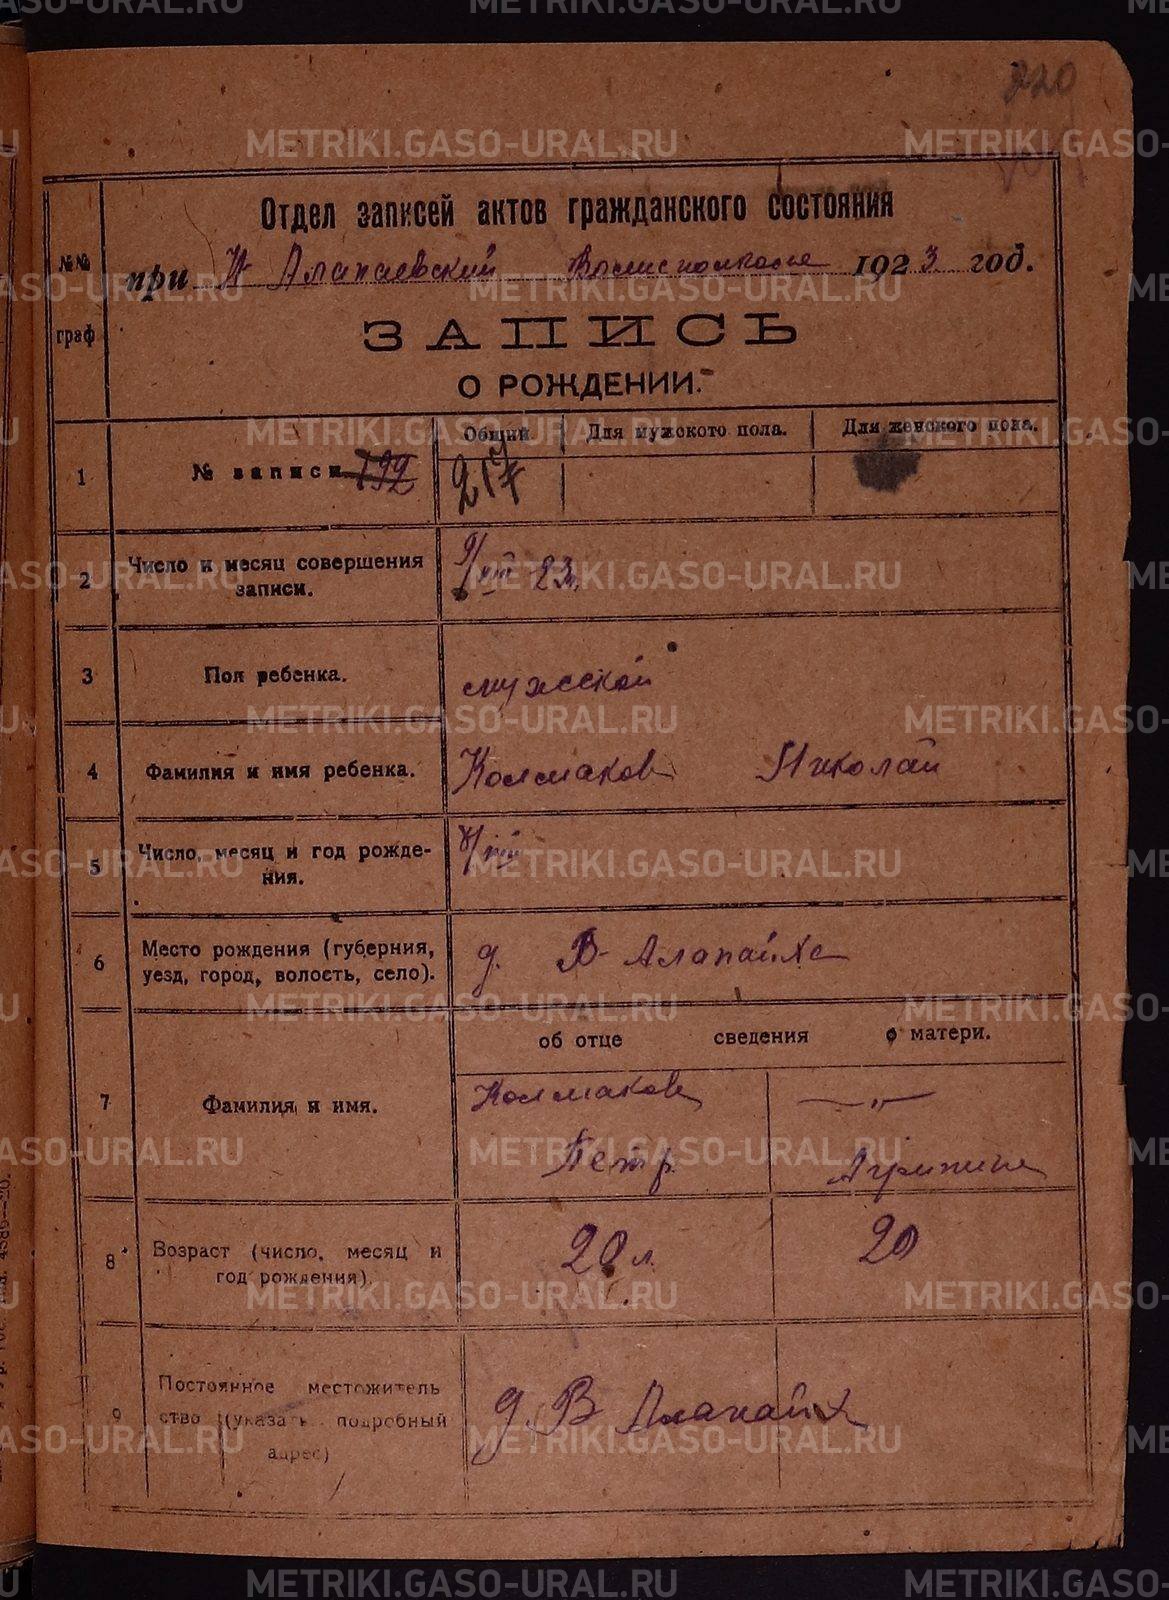 220
Отдел записей актов гражданского состояния
№№ граф
при Н Алапаевский Волисполкоме 1923 год.
ЗАПИСЬ
О РОЖДЕНИИ.
Общий Для мужского пола. Для женского пола.
1 № записи 792 217
2 Число и месяц совершения записи. 9/VIII 23
3 Пол ребенка. мужской
4 Фамилия и имя ребенка. Колмаков Николай
5 Число, месяц и год рождения. 8/VIII
6 Место рождения (губерния, уезд, город, волость, село). д. В-Алапайхе
об отце сведения о матери.
7 Фамилия и имя. Колмаков —„—
Петр Агрипина
8 Возраст (число, месяц и год рождения). 20 л. 20
9 Постоянное местожительство (указать подробный адрес) д. В Алапайх
METRIKI.GASO-URAL.RU